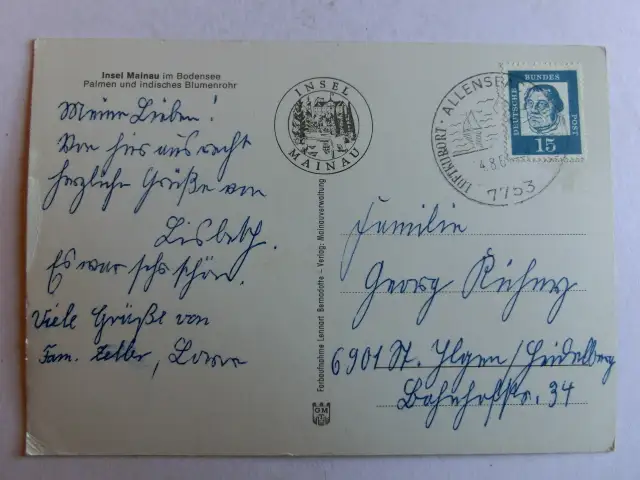 Insel Mainau im Bodensee
Palmen und indisches Blumenrohr
Meine Lieben!
Von hier aus recht
herzliche Grüße von
Lisbeth.
Es war sehr schön.
Viele Grüße von
Fam. Zeller,
INSEL
MAINAU
Farbaufnahme Lennart Bernadotte – Verlag: Mainauverwaltung
GM
LUFTKURORT · ALLENSBA
4.8.6
7753
DEUTSCHE BUNDESPOST
15
Familie
Georg
6901 St. Ilgen/Heidelberg
Bahnhofstr. 34